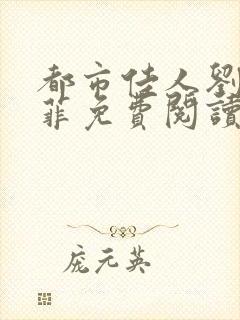 都市佳人劉
菲免費閱讀
庞元英